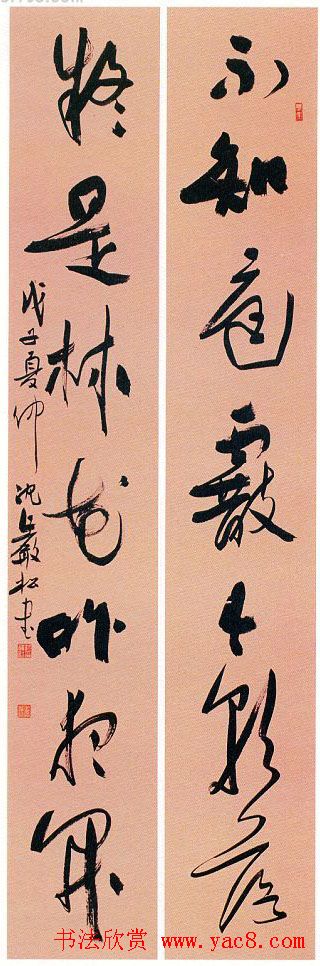 不知庭霰今朝落
疑是林花昨夜開
戊子夏仲沈巖松書
书法欣赏 www.yac8.com